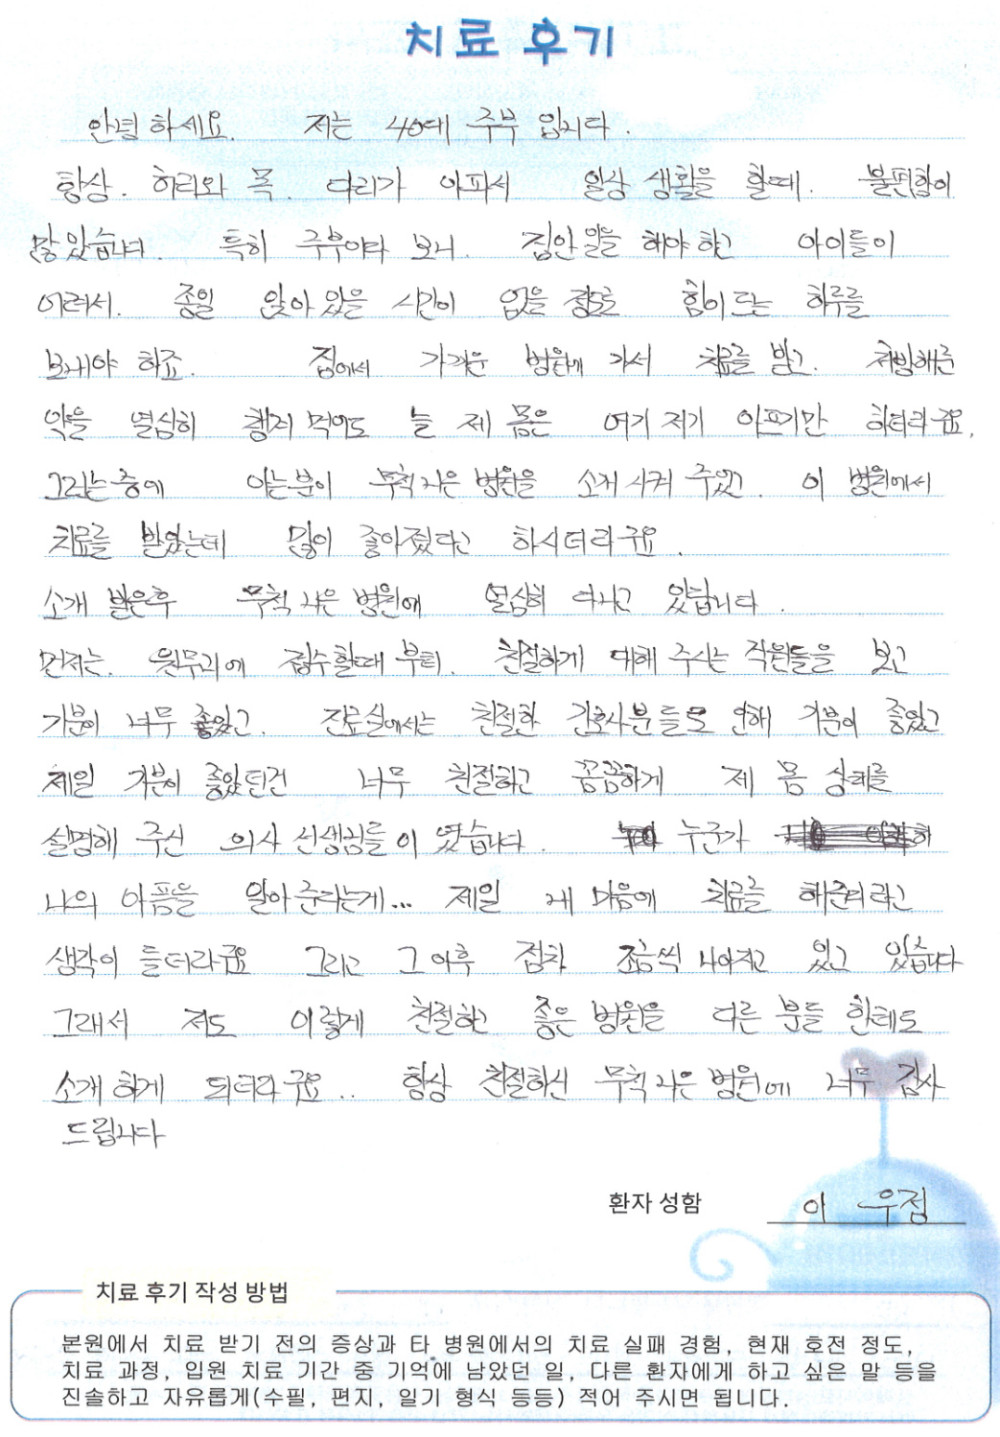 치료 후기
안녕 하세요. 저는 40대 주부 입니다.
항상. 허리와 목. 다리가 아파서 일상 생활을 할때. 불편함이
많았습니다. 특히 주부이다 보니. 집안 일을 해야 하고 아이들이
어려서. 종일 앉아 있을 시간이 없을 정도로 힘이드는 하루를
보내야 하죠. 집에서 가까운 병원에 가서 치료를 받고. 처방해준
약을 열심히 챙겨 먹어도 늘 제 몸은 여기 저기 아프기만 하더라구요.
그러는중에 아는분이 무척 나은 병원을 소개 시켜 주었고. 이 병원에서
치료를 받았는데 많이 좋아졌다고 하시더라구요.
소개 받은후 무척 나은 병원에 열심히 다니고 있습니다.
먼저는. 원무과에 접수할때 부터. 친절하게 대해 주시는 직원들을 보고
기분이 너무 좋았고. 진료실에서는 친절한 간호사분들로 인해 기분이 좋았고
제일 기분이 좋았던건 너무 친절하고 꼼꼼하게 제 몸 상태를
설명해 주신 의사 선생님들 이 였습니다. 누군가
나의 아픔을 알아 준다는게... 제일 내 마음에 치료를 해준다라고
생각이 들더라구요 그리고 그 이후 점차 조금씩 나아지고 있고 있습니다
그래서 저도 이렇게 친절하고 좋은 병원을 다른 분들 한테도
소개 하게 되더라구요.. 항상 친절하신 무척 나은 병원에 너무 감사
드립니다
환자 성함 이 우점
치료 후기 작성 방법
본원에서 치료 받기 전의 증상과 타 병원에서의 치료 실패 경험, 현재 호전 정도,
치료 과정, 입원 치료 기간 중 기억에 남았던 일, 다른 환자에게 하고 싶은 말 등을
진솔하고 자유롭게(수필, 편지, 일기 형식 등등) 적어 주시면 됩니다.